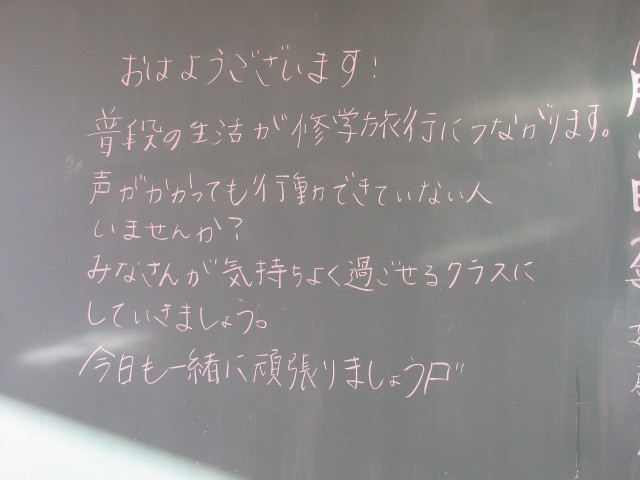 おはようございます!
普段の生活が修学旅行につながります。
声がかかっても行動できていない人
いませんか?
みなさんが気持ちよく過ごせるクラスに
していきましょう。
今日も一緒に頑張りましょう